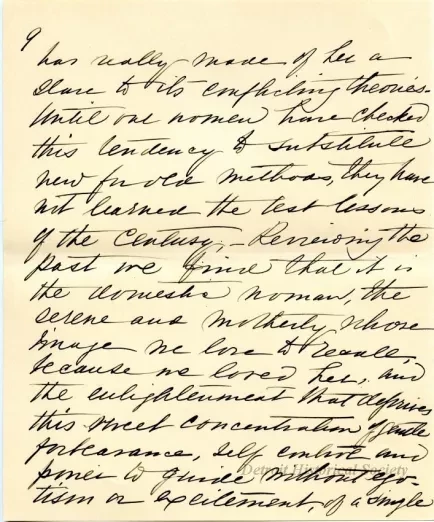 9
has really made of her a
slave to its conflicting theories.
Until our women have checked
this tendency to substitute
new for old methods, they have
not learned the best lessons
of the Century,- Reviewing the
past we find that it is
the domestic woman, the
serene and motherly whose
image we love to recall,
because we loved her, and
the enlightenment that deprives
this sweet concentration of gentle
forbearance, self control and
power to guide without ego-
tism or excitement, of a single
Detroit Historical Society